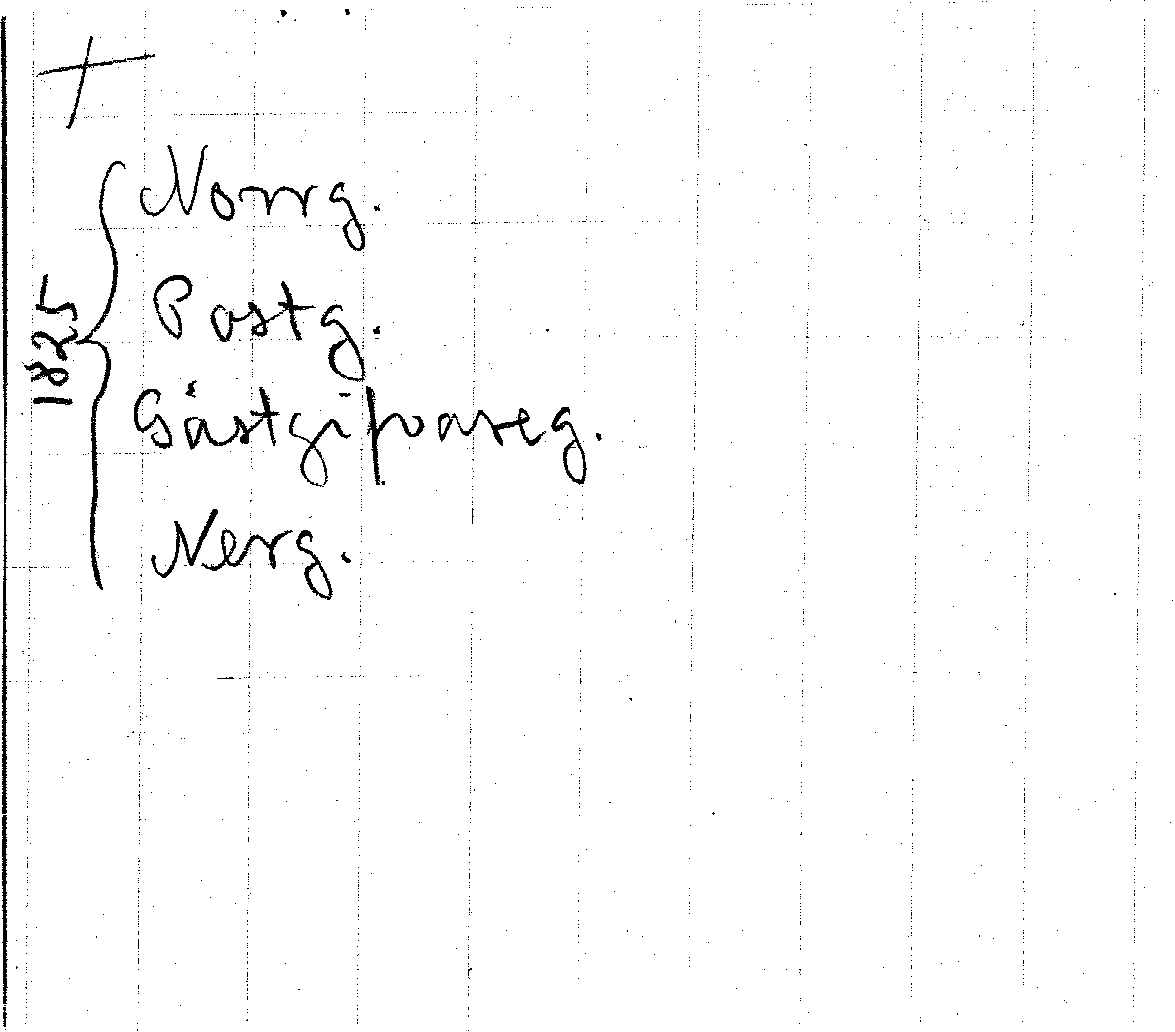 1825
Norrg.
Postg.
Gästgifvareg.
Nerg.